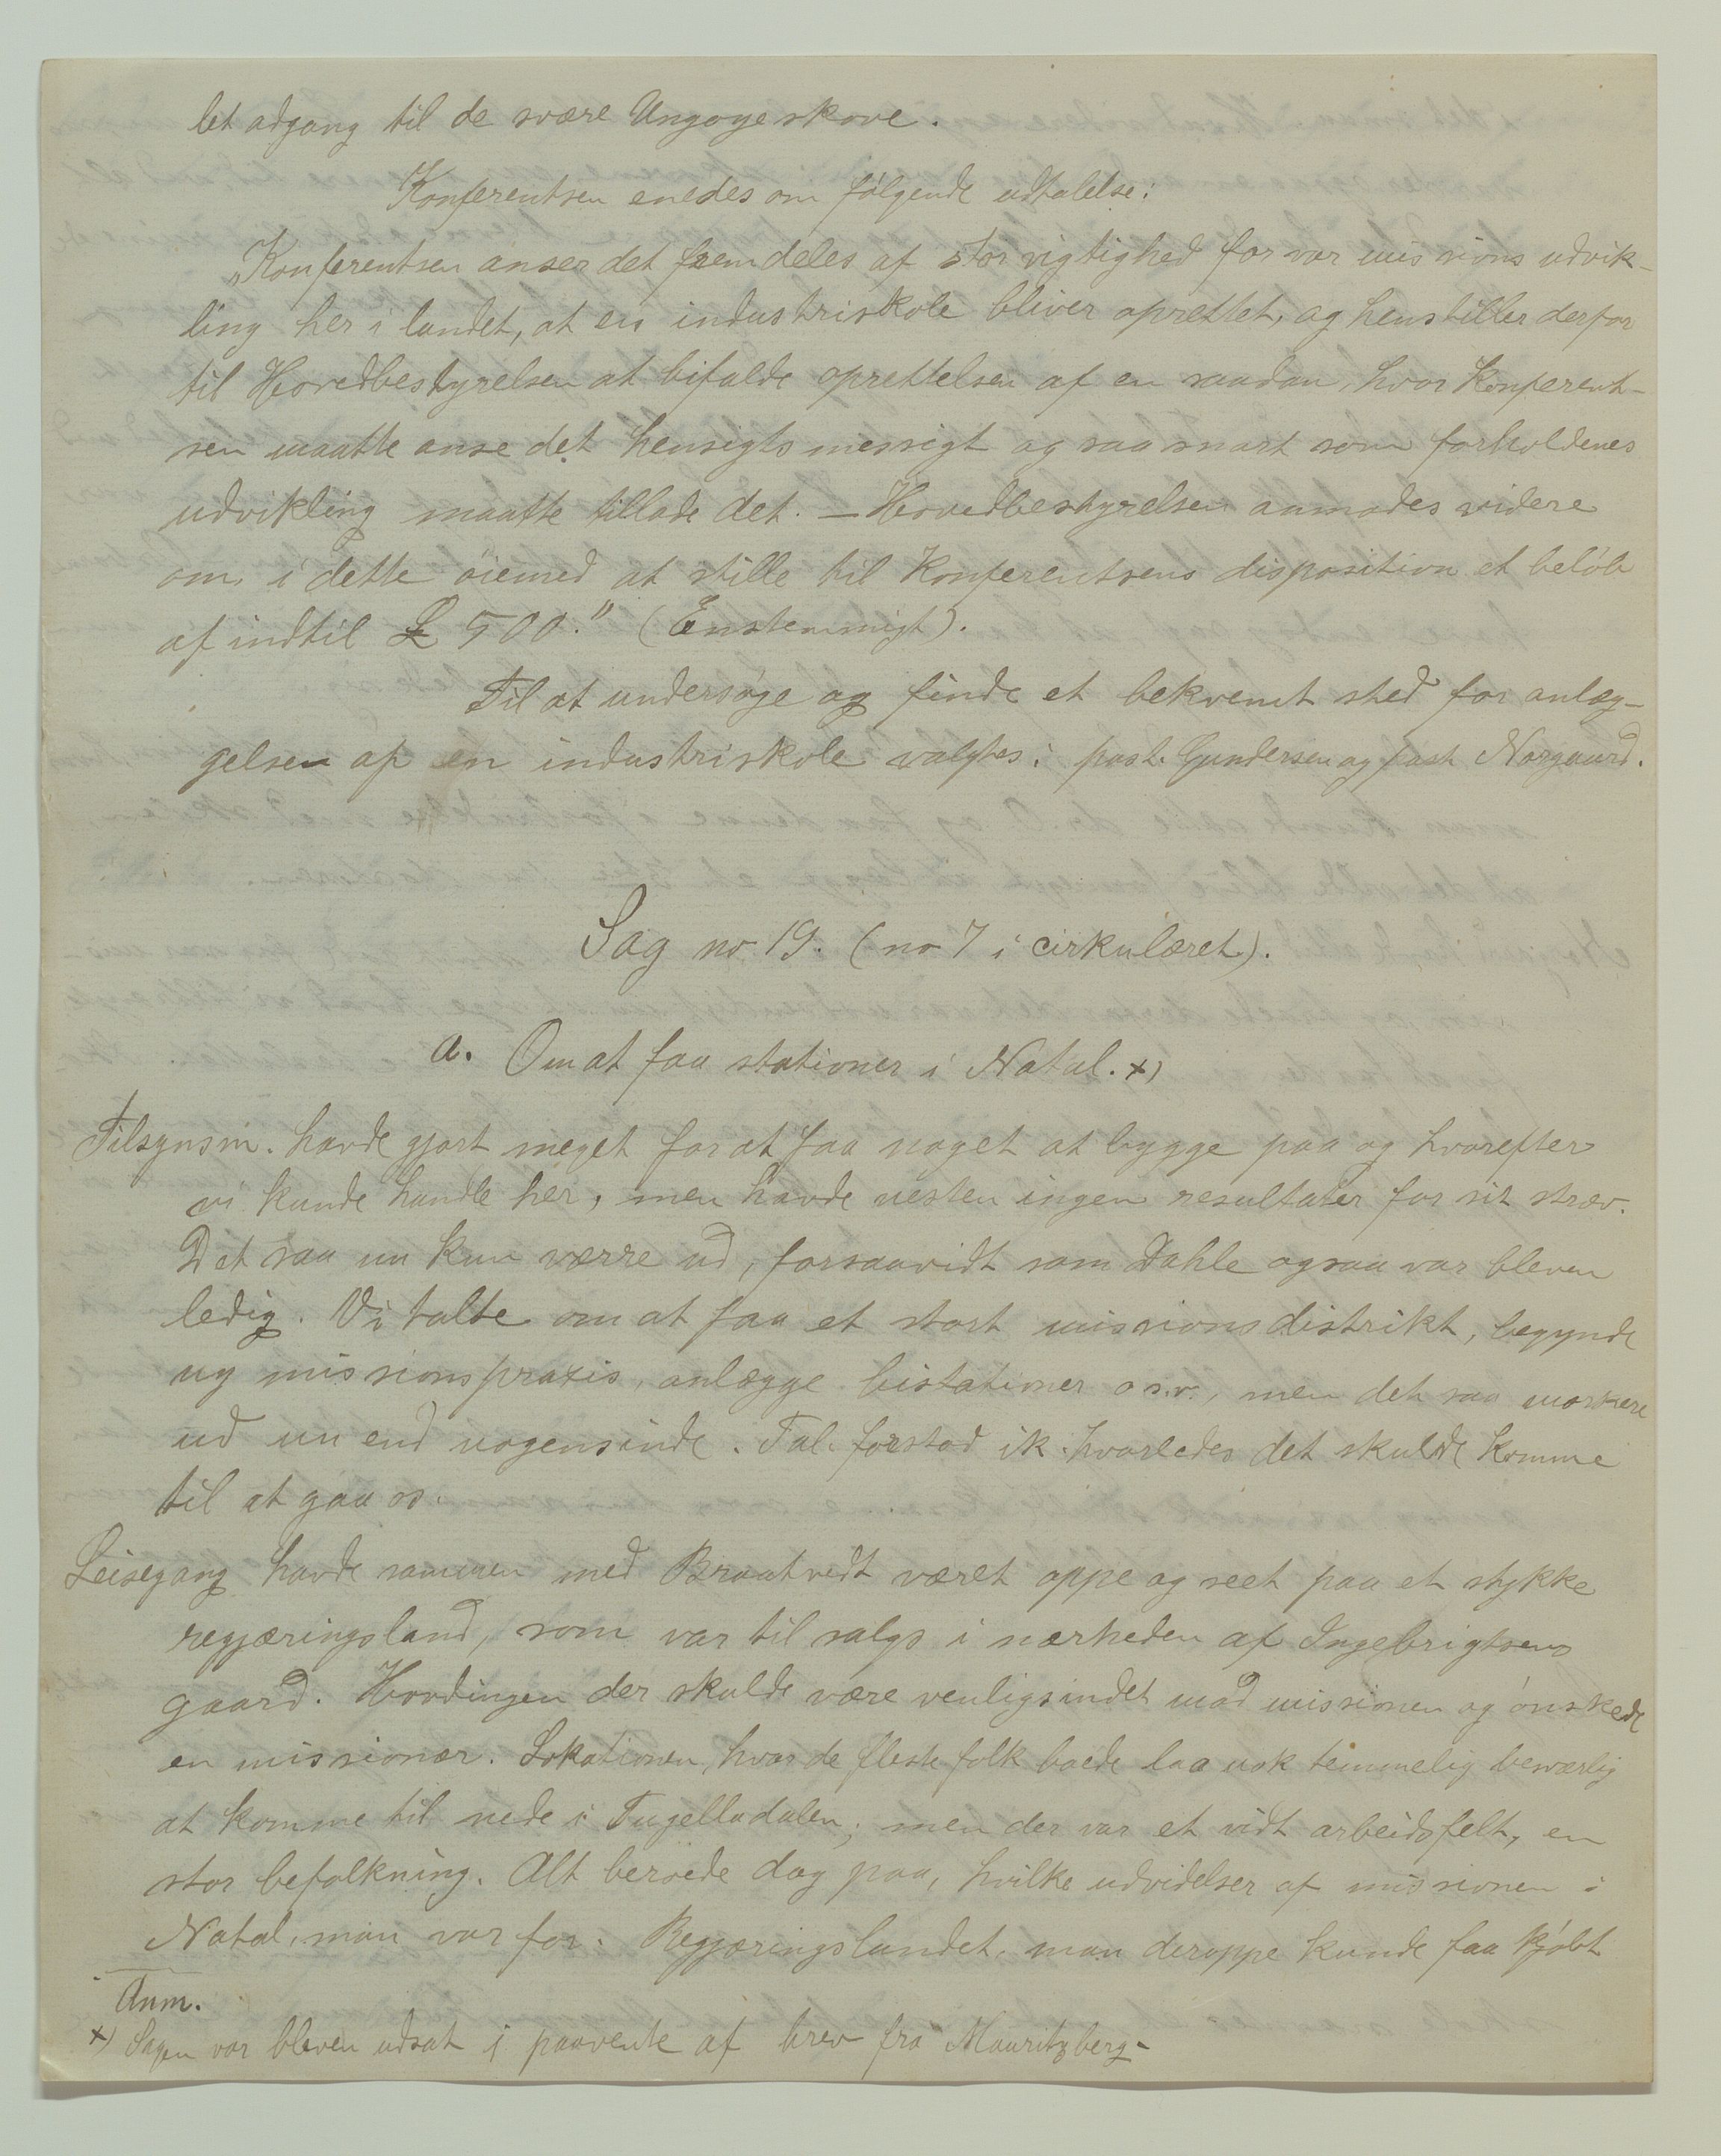 let adgang til de svære Ungoyeskove.
Konferentsen enedes om følgende udtalelse:
„Konferentsen anser det fremdeles af stor vigtighed for vor missions udvik-
ling her i landet, at en industriskole bliver oprettet, og henstiller derfor
til Hovedbestyrelsen at bifalde oprettelsen af en saadan, hvor Konferent-
sen maatte anse det hensigtsmessigt og saa snart som forholdenes
udvikling maatte tillade det. – Hovedbestyrelsen anmodes videre
om i dette øiemed at stille til Konferentsens disposition et beløb
af indtil £ 500." (Enstemmigt).
Til at undersøge og finde et bekvemt sted for anlæg-
gelsen af en industriskole valgtes: past. Gundersen og past Norgaard.
Sag no 19. (no 7 i cirkulæret).
a. Om at faa stationer i Natal. x)
Tilsynsm. havde gjort meget for at faa noget at bygge paa og hvorefter
vi kunde handle her, men havde nesten ingen resultater for sit stræv.
Det saa nu kun værre ud, forsaavidt som Dahle ogsaa var bleven
ledig. Vi talte om at faa et stort missionsdistrikt, begynde
ny missionspraxis, anlægge bistationer o s.v., men det saa mørkere
ud nu end nogensinde. Tal. forstod ik. hvorledes det skulde komme
til at gaa os.
Leisegang havde sammen med Braatvedt været oppe og seet paa et stykke
regjæringsland, som var til salgs i nærheden af Ingebrigtsens
gaard. Høvdingen der skulde være venligsindet mod missionen og ønskede
en missionær. Lokationen, hvor de fleste folk boede laa nok temmelig besværlig
at komme til nede i Tugelladalen; men der var et vidt arbeidsfelt, en
stor befolkning. Alt beroede dog paa, hvilke udvidelser af missionen i
Natal, man var for. Regjæringslandet, man deroppe kunde faa kjøbt
Anm.
x) Sagen var bleven udsat i paavente af brev fra Mauritzberg-